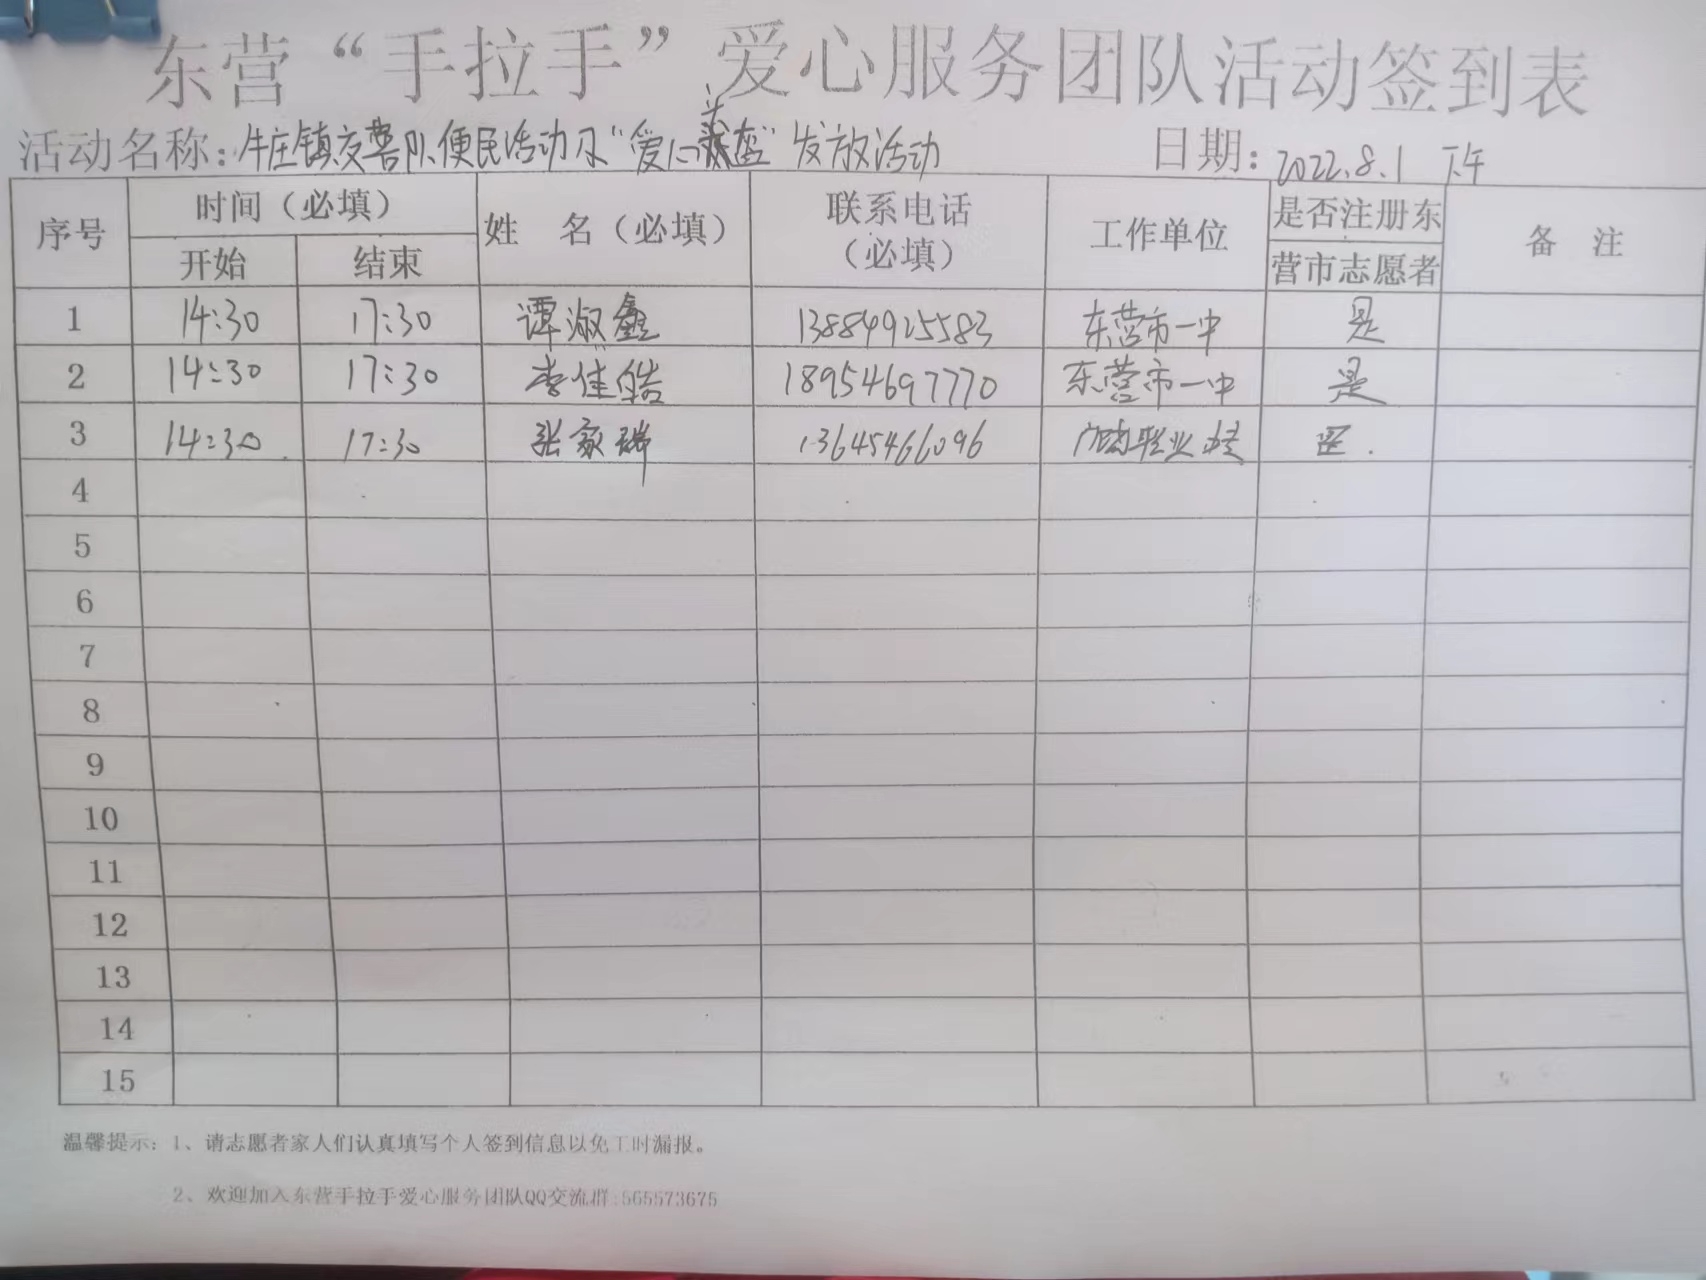 东营“手拉手”爱心服务团队活动签到表
活动名称：牛庄镇交警队便民活动及“爱心头盔”发放活动 日期：2022.8.1 下午
序号 时间（必填） 姓 名（必填） 联系电话（必填） 工作单位 是否注册东营市志愿者 备 注
开始 结束
1 14:30 17:30 谭淑鑫 13884925583 东营市一中 是
2 14:30 17:30 李佳皓 18954697770 东营市一中 是
3 14:30 17:30 张家瑞 13645466096 职业
4
5
6
7
8
9
10
11
12
13
14
15
温馨提示：1、请志愿者家人们认真填写个人签到信息以免工时漏报。
2、欢迎加入东营手拉手爱心服务团队QQ交流群:565573675